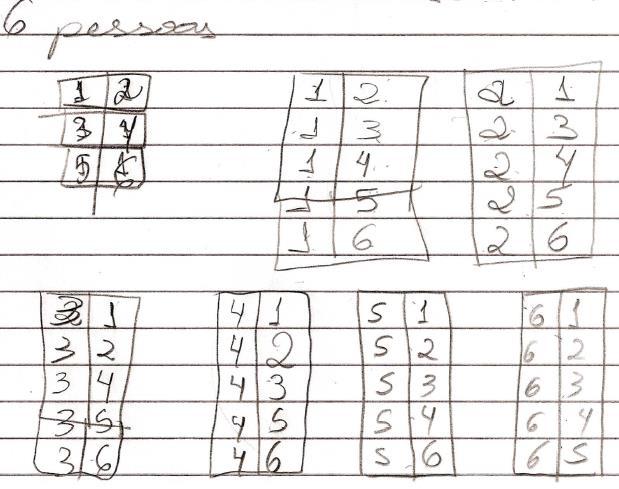 6 pessoas
1 2 1 2 2 1
3 4 1 3 2 3
5 6 1 4 2 4
1 5 2 5
1 6 2 6
3 1 4 1 5 1 6 1
3 2 4 2 5 2 6 2
3 4 4 3 5 3 6 3
3 5 4 5 5 4 6 4
3 6 4 6 5 6 6 5